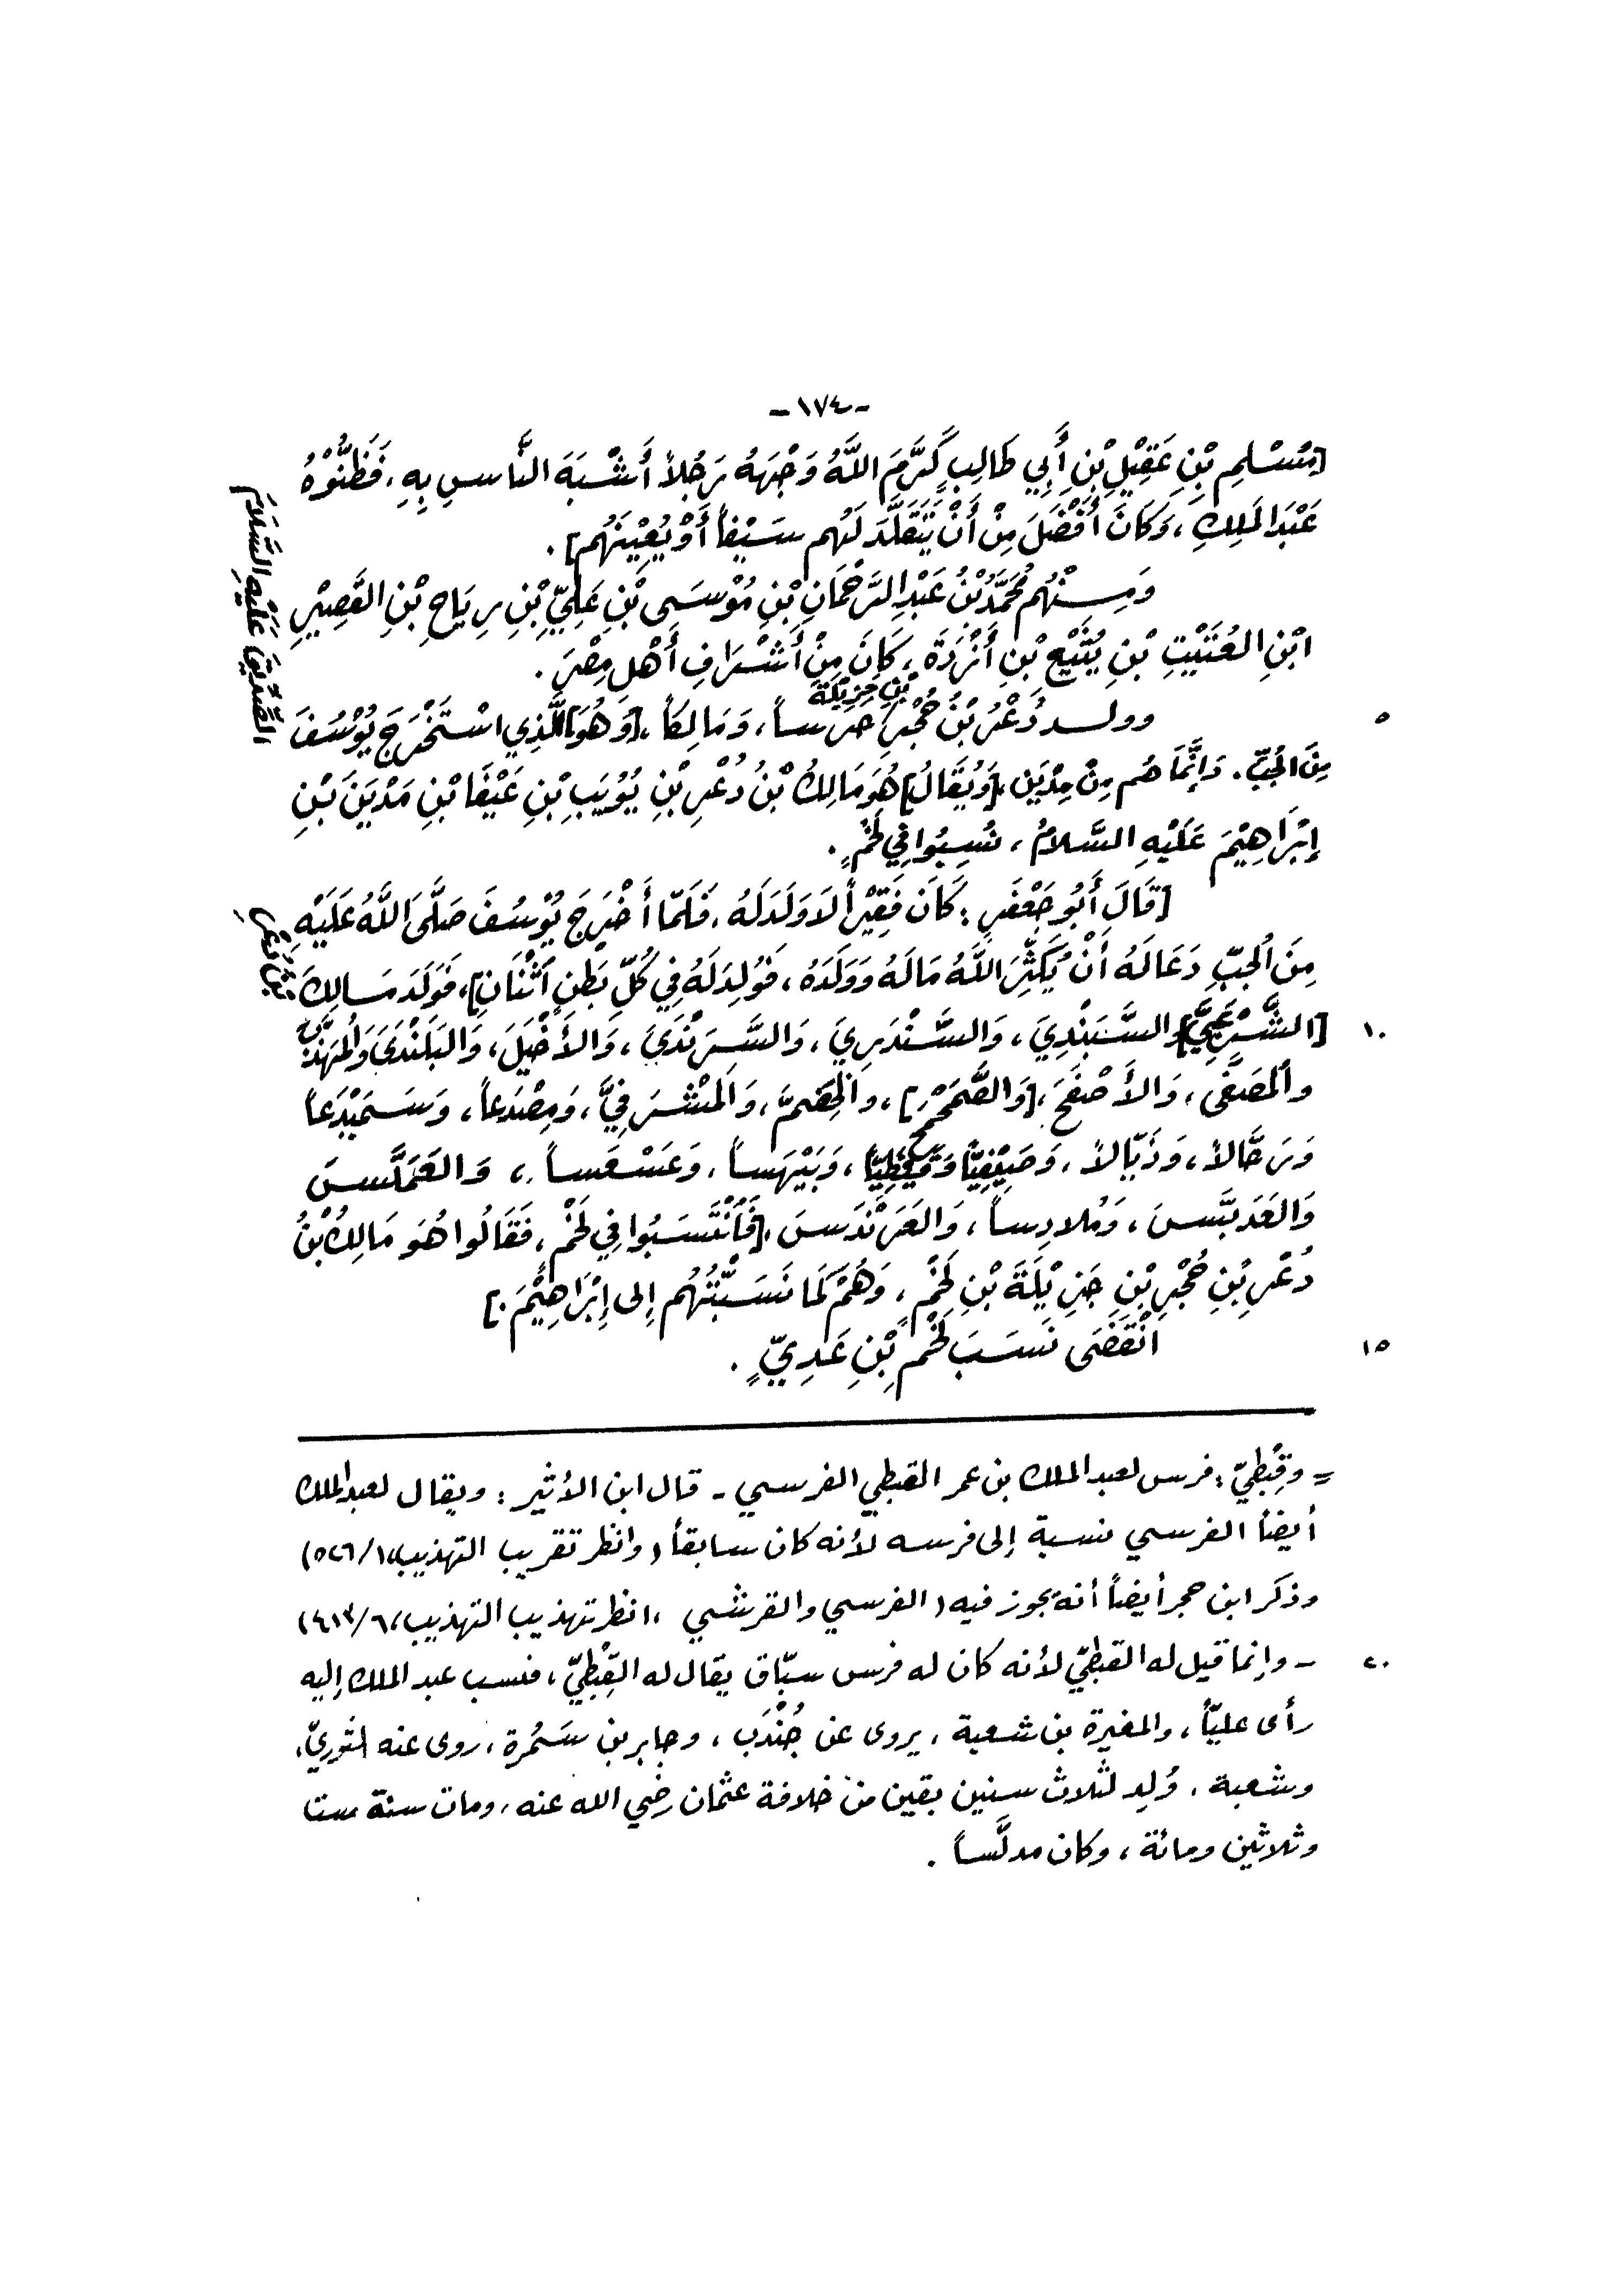 -١٧٤-
[مُسْلِمِ بْنِ عَقِيْلِ بْنِ أَبِي طَالِبٍ كَرَّمَ اللَّهُ وَجْهَهُ رَجُلاً أَشْبَهَ النَّاسِ بِهِ، فَظَنُّوْهُ
عَبْدَ المَلِكِ، وَكَانَ أَفْضَلَ مِنْ أَنْ يَتَقَلَّدَ لَهُم سَيْفاً أَوْ يُعِيْنَهُم].
وَمِنْهُم مُحَمَّدُ بْنُ عَبْدِ الرَّحْمَانِ بْنِ مُوْسَى بْنِ عَلِيِّ بْنِ رِيَاحِ بْنِ القَصِيْرِ
ابْنِ العُتَيْتِ بْنِ يُثَيْعِ بْنِ أَزْدَةَ، كَانَ مِنْ أَشْرَافِ أَهْلِ مِصْرَ.
٥ وولد دُعْرُ بْنُ حُجْرِ بْنِ جَزِيْلَةَ حرساً، وَمَالِكاً، [وَهُوَ] الَّذِي اسْتَخْرَجَ يُوْسُفَ الصِّدِّيقَ عَلَيْهِ السَّلَامُ
مِنَ الجُبِّ. وَإِنَّمَا هُم مِنْ مِدْيَنَ، [وَيُقَالُ] هُوَ مَالِكُ بْنُ دُعْرِ بْنِ يُوْيَبِ بْنِ عَيْفَا بْنِ مَدْيَنَ بْنِ
إِبْرَاهِيْمَ عَلَيْهِ السَّلامُ، نُسِبُوا فِي لَخْمٍ.
[قَالَ أَبُو جَعْفَرٍ: كَانَ فَقِيْراً لاَ وَلَدَ لَهُ، فَلَمَّا أَخْرَجَ يُوْسُفَ صَلَّى اللَّهُ عَلَيْهِ
مِنَ الجُبِّ دَعَا لَهُ أَنْ يُكَثِّرَ اللَّهُ مَالَهُ وَوَلَدَهُ، فَوُلِدَ لَهُ فِي كُلِّ بَطْنٍ اثْنَانِ]، فَوَلَدَ مَالِكُ بْنُ دُعْرٍ
١٠ [الشَّرْعَبِيَّ] والسَّبَنْدِيَ، وَالسَّنْدَرِيَ، وَالسَّرَنْدَى، وَالأَخْيَلَ، وَالبَلَنْدَى وَالمُهَنَّدَ
والمُصَفَّى، وَالأَصْفَحَ، [وَالصَّمَحْمَحَ]، وَالخِضَمَّ، وَالمَشْرَفِيَّ، وَمِصْدَعاً، وَسَمَيْدَعاً
وَرَحَّالاً، وَذَيَّالاً، وَصَيْفِيّاً وَقَيْظِيّاً، وَبَيْهَساً، وَعَسْعَساً، وَالعَمَلَّسَ
وَالعَدَبَّسَ، وَمُلادِساً، وَالعَرَنْدَسَ، [فَانْتَسَبُوا فِي لَخْمٍ، فَقَالُوا هُوَ مَالِكُ بْنُ
دُعْرِ بْنِ حُجْرِ بْنِ جَزِيْلَةَ بْنِ لَخْمٍ، وَهُم كَمَا نَسَبْتُهُم إِلى إِبْرَاهِيْمَ.]
١٥ انْقَضَى نَسَبَ لَخْمِ بْنِ عَدِيٍّ.
= وقِبْطِيّ: فرس لعبد الملك بن عمر القبطي الفرسي - قال ابن الأثير: ويقال لعبد الملك
أيضاً الفرسي نسبة إلى فرسه لأنه كان سابقاً (وانظر تقريب التهذيب، ٥٢٦/١)
وذكر ابن حجر أيضاً أنه يجوز فيه (الفرسي والقرشي، انظر تهذيب التهذيب، ٤١٣/٦)
٢٠ - وإنما قيل له القبطيّ لأنه كان له فرس سبّاق يقال له القِبْطِيّ، فنسب عبد الملك إليه
رأى عليّاً، والمغيرة بن شعبة، يروى عن جُنْدَب، وجابر بن سَمُرة، روى عنه الثوريّ،
وشعبة، وُلِد لثلاث سنين بقين من خلافة عثمان رضي الله عنه، ومات سنة ستا
وثلاثين ومائة، وكان مدلَّساً.